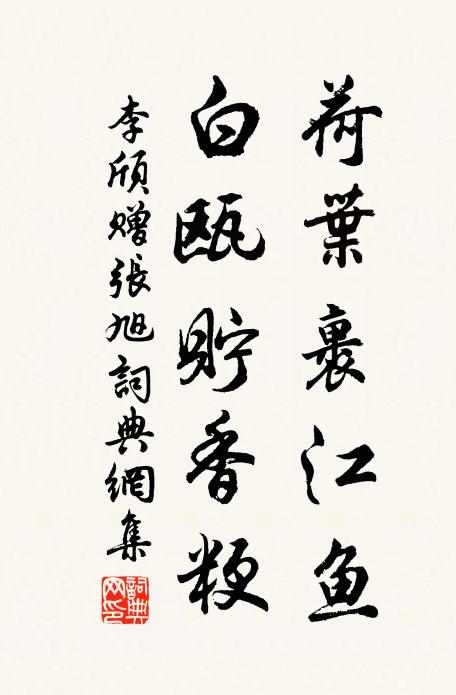 荷葉裹江鱼
白甌貯香粳
李頎贈張旭詞典網集
詞典網印